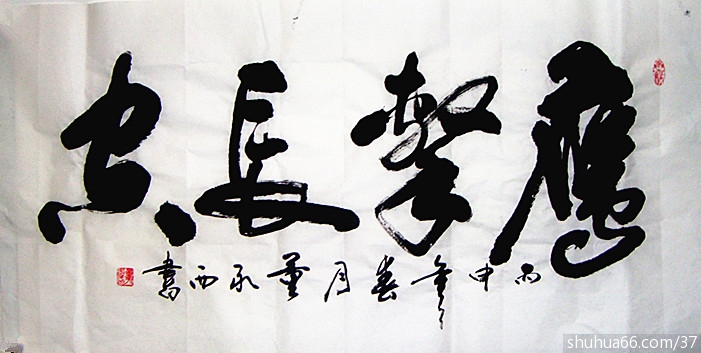 鷹擊長空
丙申年春月董西書
shuhua66.com/37